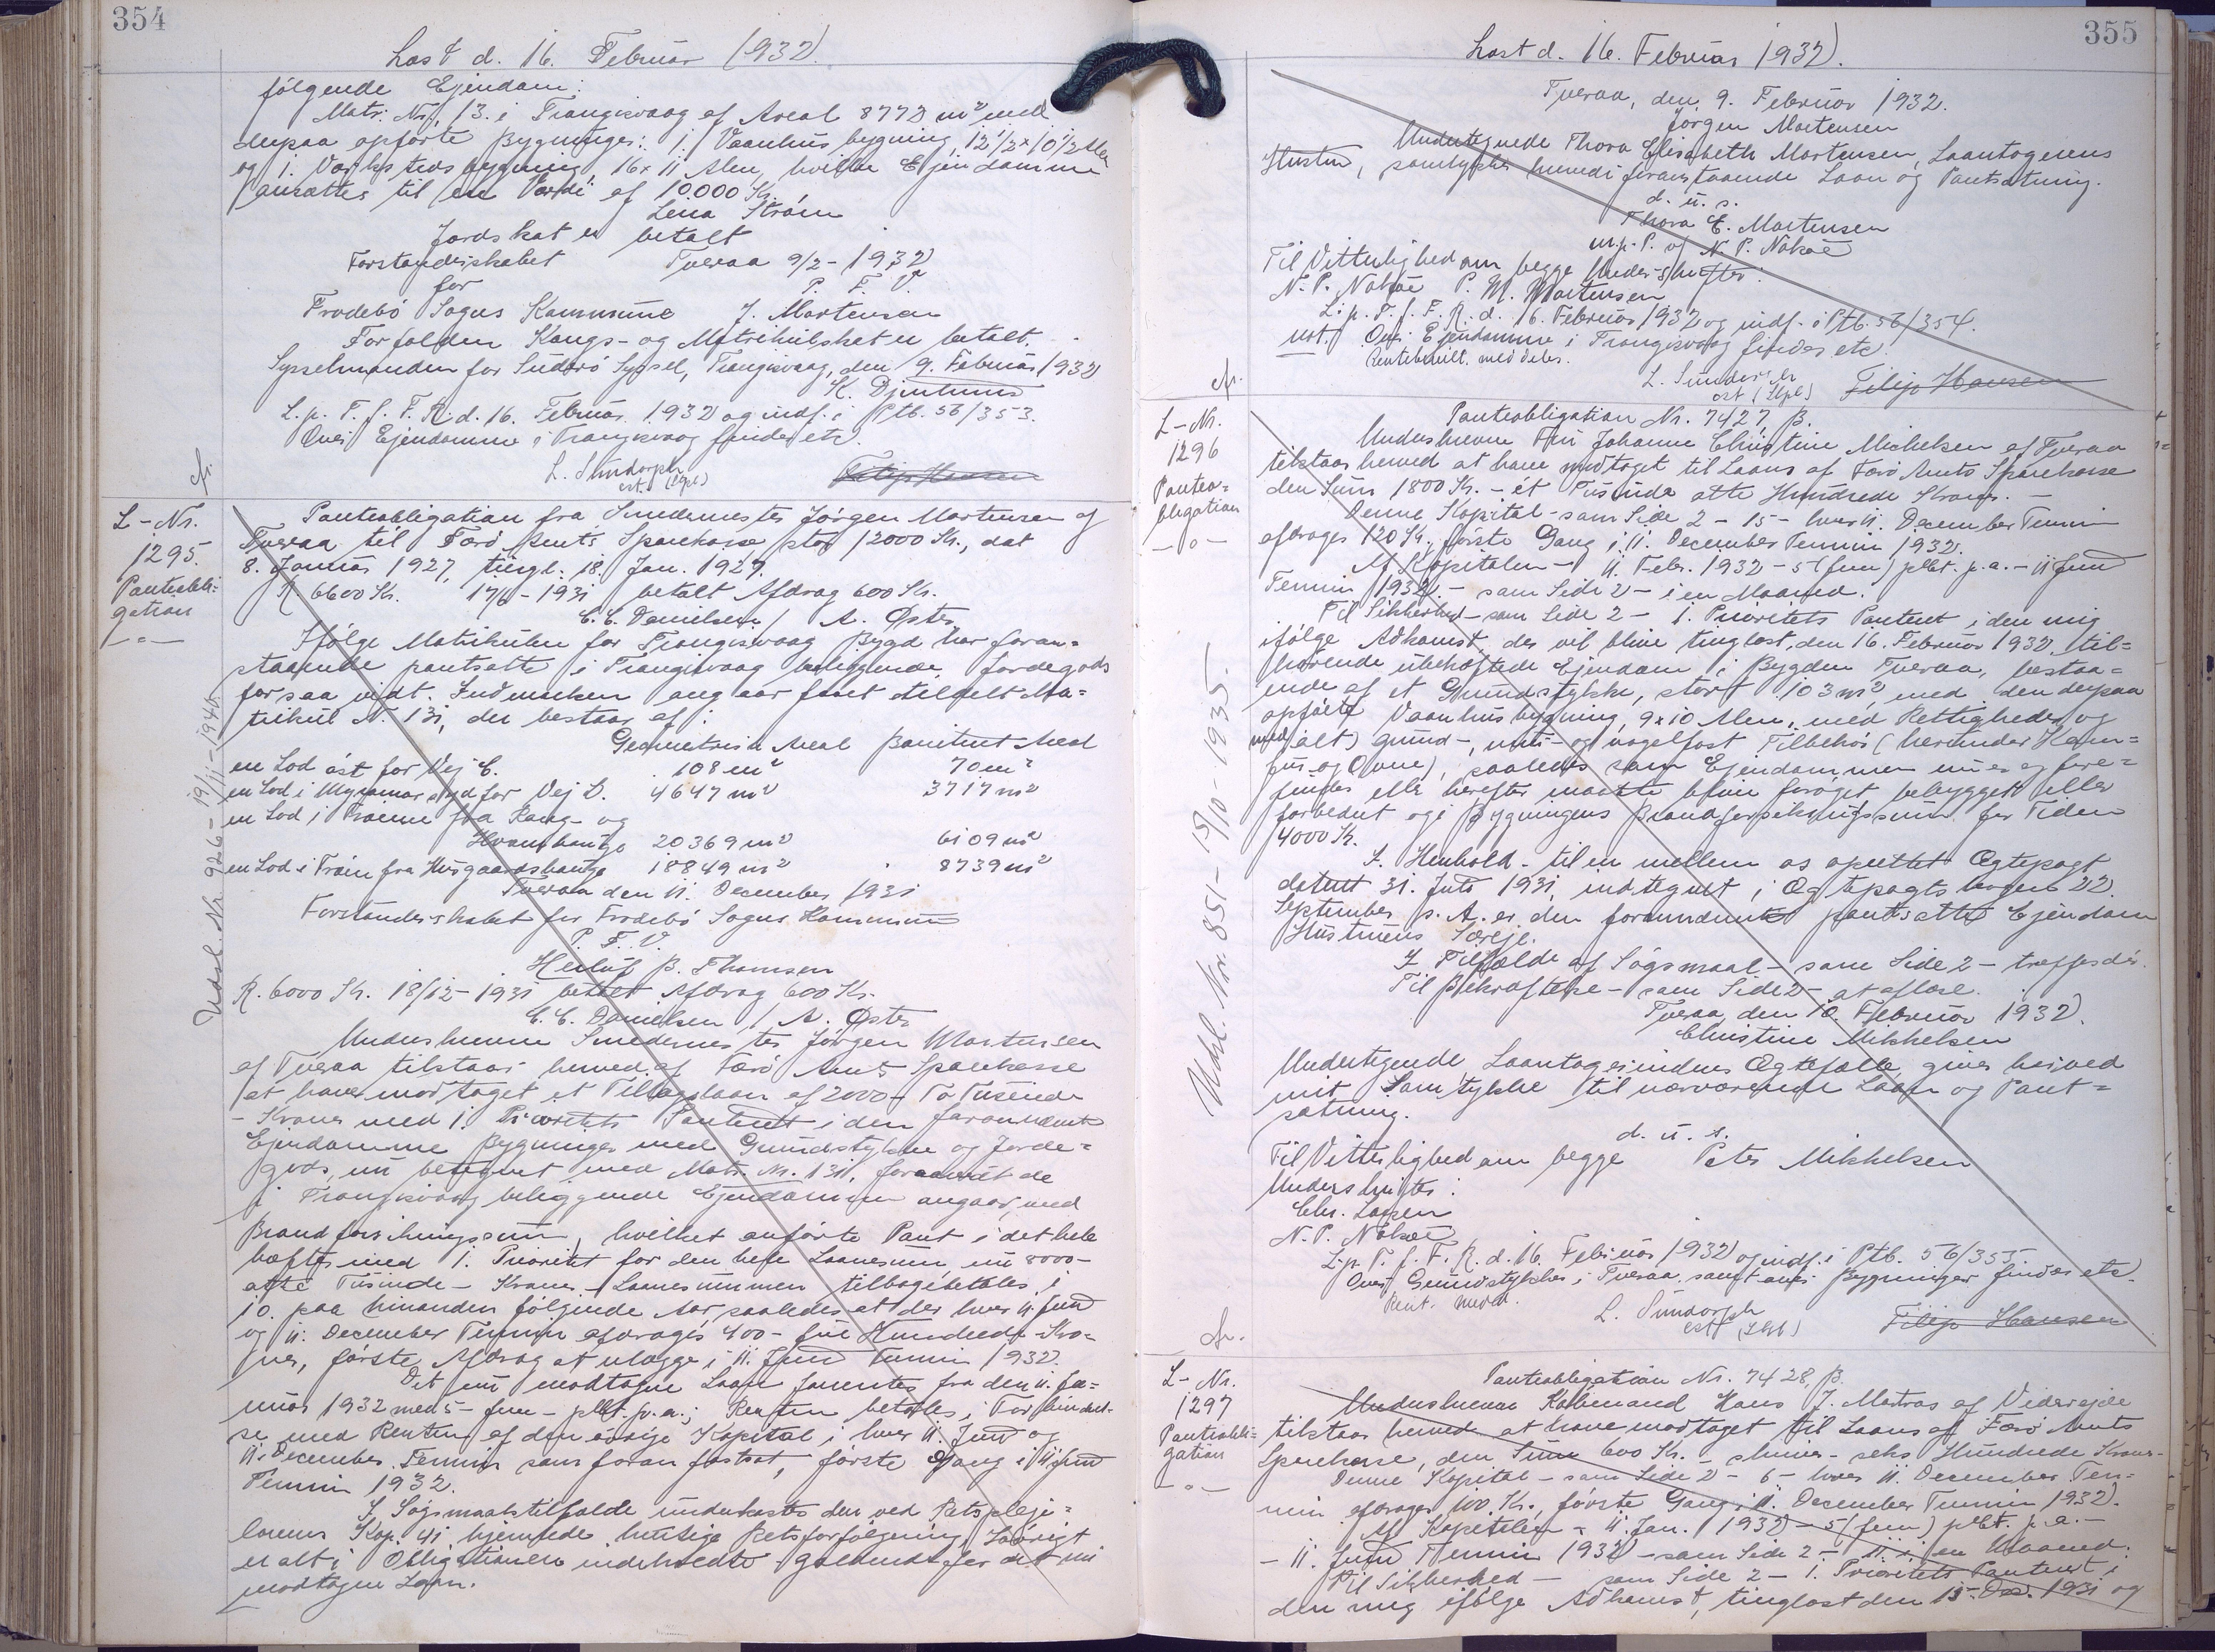 354
Læst d. 16. Februar 1932.
følgende Ejendom:
Matr. Nr. 13. i Trangisvaag af Areal 8772 m² med
derpaa opførte Bygninger: 1. Vaanhus bygning, 12½ x 10½ Alen
og 1. Værkstedsbygning, 16 x 11 Alen, hvilke Ejendomme
ansættes til en Værdi af 10.000 Kr.
Lena Strøm
Jordskat er betalt
Forstanderskabet Tveraa 9/2 - 1932
for P. F. V.
Frodebø Sogns Kommune J. Mortensen
Forfalden Kongs- og Matrikulskat er betalt.
Sysselmanden for Suderø Syssel, Trangisvaag, den 9. Februar 1932
K. Djurhuus
L. p. T. f. F. R. d. 16. Februar 1932 og indf. i Ptb. 56/353.
Ovf. Ejendomme i Trangisvaag findes etc.
L. Sundorph
cst. (Spl)
Filip Hansen
cfr.
L-Nr.
1295.
Panteobli-
gation
-o-
Udsl. Nr. 926 - 19/11 - 1946.
Panteobligation fra Smedemester Jørgen Mortensen af
Tveraa til Færø Amts Sparekasse stor 12000 Kr., dat
8. Januar 1927, tingl. 18. Jan. 1927.
R. 6600 Kr. 17/6 - 1931 betalt Afdrag 600 Kr.
C. C. Danielsen / A. Øster
Ifølge Matrikulen for Trangisvaag Bygd har foran-
staaende pantsatte i Trangisvaag beliggende Jordegods
for saa vidt Indmarken angaar faaet tildelt Ma-
trikul Nr. 131, der bestaar af:
Geometrisk Areal Boniteret Areal
en Lod øst for Vej C. 108 m² 70 m²
en Lod i Myrarnar syd for Vej D. 4647 m² 3717 m²
en Lod i Trøinne fra Rang- og
Hvamhauge 20369 m² 6109 m²
en Lod i Trøin fra Husgaardshauge 18849 m² 8739 m²
Tveraa den 11. December 1931
Forstanderskabet for Frodebø Sogns Kommune
P. F. V.
Herluf B. Thomsen
R. 6000 Kr. 18/12 - 1931 betalt Afdrag 600 Kr.
C. C. Danielsen / A. Øster
Underskrevne Smedemester Jørgen Mortensen
af Tveraa tilstaar herved af Færø Amts Sparekasse
at have modtaget et Tillægslaan af 2000 - To Tusinde
- Kroner med 1. Prioritets Panteret i den forannævnte
Ejendomme Bygninger med Grundstykke og Jorde-
gods, nu betegnet med Matr. Nr. 131, foraavidt de
i Trangisvaag beliggende Ejendommen angaar, med
Brandforsikringssum, hvilket anførte Pant i det hele
hæftes med 1. Prioritet for den hele Laanesum, nu 8000 -
otte Tusinde - Kroner. Laanesummen tilbagebetales i
10. paa hinanden følgende Aar, saaledes at der hver 11. Juni
og 11. December Termin afdrages 400 - fire Hundrede - Kro-
ner, første Afdrag at erlægge i 11. Juni Termin 1932.
Det nu modtagne Laan forrentes fra den 11. Ja-
nuar 1932 med 5 - fem - pCt. p. a.; Renten betales i Forbindel-
se med Renten af den øvrige Kapital i hver 11. Juni og
11. December Termin som foran fastsat, første Gang i 11. Juni
Termin 1932.
I Søgsmaalstilfælde underkastes den ved Retspleje-
lovens Kap. 41 hjemlede hurtige Retsforfølgning. I øvrigt
er alt i Obligationen indeholdte gældende for det nu
modtagne Laan.
355
Læst d. 16. Februar 1932.
Tveraa, den 9. Februar 1932.
Jørgen Mortensen
Undertegnede Thora Elisabeth Mortensen, Laantagerens
Hustru, samtykker herved i foranstaaende Laan og Pantsætning.
d. u. s.
Thora E. Mortensen
m. p. P. af N. P. Nolsøe
Til Vitterlighed om begge Underskrifter:
N. P. Nolsøe P. M. Mortensen
L. p. T. f. F. R. d. 16. Februar 1932 og indf. i Ptb. 56/354.
not. Ovf. Ejendomme i Trangisvaag findes etc.
Rentebevill. meddeles.
L. Sundorph
cst (Spl)
Filip Hansen
cfr.
L-Nr.
1296
Panteo-
bligation
-o-
Udsl. Nr. 851 - 19/10 - 1935.
Panteobligation Nr. 7427, B.
Underskrevne Fru Johanne Christine Michelsen af Tveraa
tilstaar herved at have modtaget til Laans af Færø Amts Sparekasse
den Sum 1800 Kr. - ét Tusinde otte Hundrede Kroner. -
Denne Kapital - som Side 2 - 15 - hver 11. December Termin
afdrages 120 Kr., første Gang i 11. December Termin 1932.
Af Kapitalen - 11. Febr. 1932 - 5 (fem) pCt. p. a. - 11 Juni
Termin 1932. - som Side 2 - i en Maaned.
Til Sikkerhed - som Side 2 - 1. Prioritets Panteret i den mig
ifølge Adkomst, der vil blive tinglæst, den 16. Februar 1932, til-
hørende ubehæftede Ejendom i Bygden Tveraa, bestaa-
ende af et Grundstykke, stort 103 m², med den derpaa
opførte Vaanhusbygning, 9 x 10 Alen, med Rettigheder og
med alt grund-, mur- og nagelfast Tilbehør (herunder Kom-
fur og Ovne), saaledes som Ejendommen nu er og fore-
findes eller herefter maatte blive forøget, bebygget eller
forbedret og i Bygningens Brandforsikringssum for Tiden
4000 Kr.
I Henhold til en mellem os oprettet Ægtepagt
dateret 31. Juli 1931, indtegnet i Ægtepagts bogen 22.
September s. A. er den forannævnte pantsatte Ejendom
Hustruens Særeje.
I Tilfælde af Søgsmaal - som Side 2 - træffes dér.
Til Bekræftelse - som Side 2 - at aflæse.
Tveraa, den 10. Februar 1932.
Christine Mikkelsen
Undertegnede Laantagerindens Ægtefælle, giver herved
mit Samtykke til nærværende Laan og Pant-
sætning.
d. u. s.
Til Vitterlighed om begge Peter Mikkelsen
Underskrifter:
Chr. Larsen
N. P. Nolsøe
L. p. T. f. F. R. d. 16. Februar 1932 og indf. i Ptb. 56/355.
Ovf. Grundstykker i Tveraa samt anf. Bygninger findes etc.
Rent. medd.
L. Sundorph
cst (Spl)
Filip Hansen
cfr.
L-Nr.
1297
Panteobli-
gation
-o-
Panteobligation Nr. 7428, B.
Underskrevne Købmand Hans J. Matras af Viderejde
tilstaar herved at have modtaget til Laans af Færø Amts
Sparekasse, den Sum 600 Kr. - skriver - seks Hundrede Kroner -
Denne Kapital - som Side 2 - 6 - hver 11. December Ter-
min afdrages 100 Kr., første Gang i 11. December Termin 1932.
Af Kapitalen - 11. Jan. 1932 - 5 (fem) pCt. p. a. -
- 11. Juni Termin 1932 - som Side 2 - i en Maaned.
Til Sikkerhed - som Side 2 - 1. Prioritets Panteret i
den mig ifølge Adkomst, tinglæst den 15. Dec. 1931 og